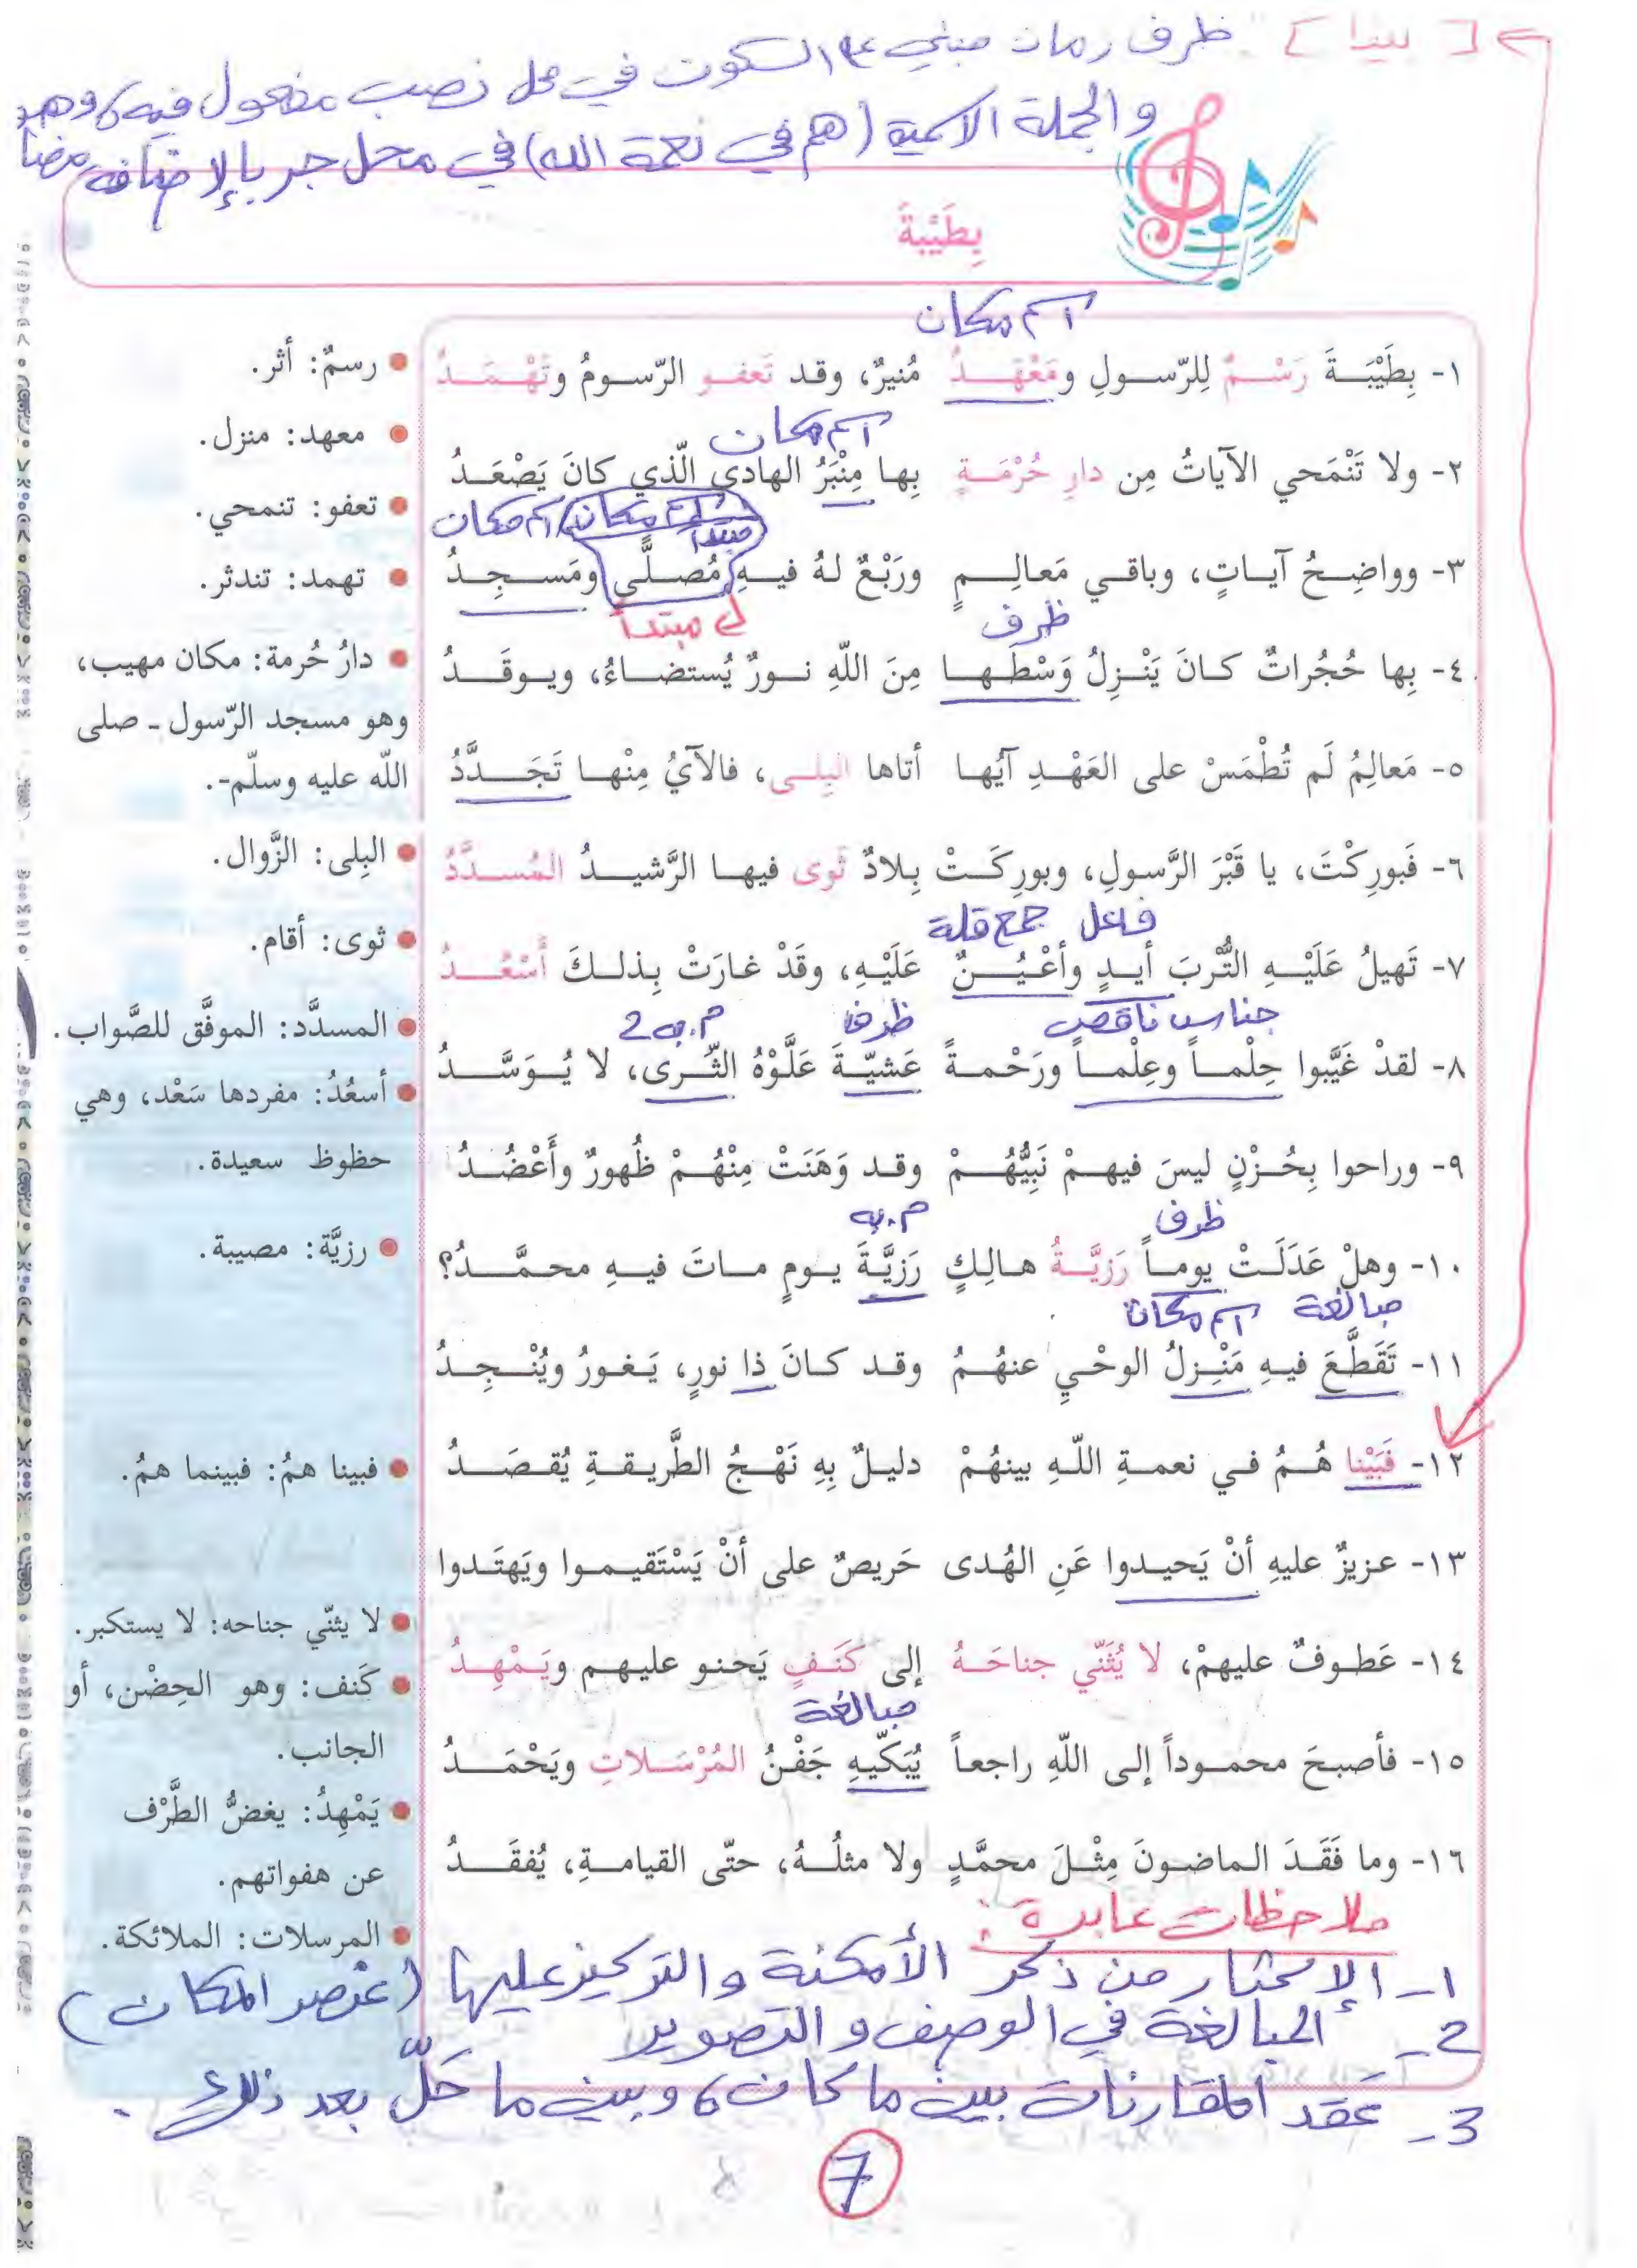 [بينا]: ظرف زمان مبني على السكون في محل نصب مفعول فيه، وهو مضاف
والجملة الاسمية (هم في نعمة الله) في محل جر بالإضافة
بِطَيْبةَ
اسم مكان
١- بِطَيْبَةَ رَسْمٌ لِلرّسولِ ومَعْهَدُ مُنيرٌ، وقد تَعفو الرّسومُ وتَهْمَدُ
اسم مكان
٢- ولا تَنْمَحي الآياتُ مِن دارِ حُرْمَةٍ بِها مِنْبَرُ الهادي الّذي كانَ يَصْعَدُ
اسم مكان اسم مكان
مبتدأ
٣- وواضِحُ آياتٍ، وباقي مَعالِمٍ ورَبْعٌ لهُ فيهِ مُصلًّى ومَسجِدُ
ظرف مبتدأ
٤- بِها حُجُراتٌ كانَ يَنْزِلُ وَسْطَها مِنَ اللّهِ نورٌ يُستضاءُ، ويوقَدُ
٥- مَعالِمُ لَم تُطْمَسْ على العَهْدِ آيُها أتاها البِلى، فالآيُ مِنْها تَجَدَّدُ
٦- فَبورِكْتَ، يا قَبْرَ الرَّسولِ، وبورِكَتْ بِلادٌ ثَوى فيها الرَّشيدُ المُسدَّدُ
فاعل جمع قلة
٧- تَهيلُ عَلَيْهِ التُّرْبَ أيدٍ وأعْيُنٌ عَلَيْهِ، وقَدْ غارَتْ بِذلكَ أسْعُدُ
جناس ناقص ظرف م.به2
٨- لقدْ غَيَّبوا حِلْماً وعِلْماً ورَحْمةً عَشيّةَ عَلَّوْهُ الثّرى، لا يُوَسَّدُ
٩- وراحوا بِحُزْنٍ ليسَ فيهمْ نَبِيُّهُمْ وقد وَهَنَتْ مِنْهُمْ ظُهورٌ وأَعْضُدُ
ظرف م.به
١٠- وهلْ عَدَلَتْ يوماً رَزيَّةُ هالِكٍ رَزيَّةَ يومٍ ماتَ فيهِ محمَّدُ؟
مبالغة اسم مكان
١١- تَقَطَّعَ فيهِ مَنْزِلُ الوحْيِ عنهُمُ وقد كانَ ذا نورٍ، يَغورُ ويُنْجِدُ
١٢- فَبَيْنا هُمُ في نعمةِ اللّهِ بينهُمْ دليلٌ بِهِ نَهْجُ الطَّريقةِ يُقصَدُ
١٣- عزيزٌ عليهِ أنْ يَحيدوا عَنِ الهُدى حَريصٌ على أنْ يَسْتَقيموا ويَهتَدوا
١٤- عَطوفٌ عليهمْ، لا يُثَنّي جناحَهُ إلى كَنَفٍ يَحنو عليهم ويَمْهِدُ
مبالغة
١٥- فأصبحَ محموداً إلى اللّهِ راجعاً يُبَكّيهِ جَفْنُ المُرْسَلاتِ ويَحْمَدُ
١٦- وما فَقَدَ الماضونَ مِثْلَ محمَّدٍ ولا مثلُهُ، حتّى القيامةِ، يُفقَدُ
رسمٌ: أثر.
معهد: منزل.
تعفو: تنمحي.
تهمد: تندثر.
دارُ حُرمة: مكان مهيب،
وهو مسجد الرّسول - صلى
اللّه عليه وسلّم-.
البِلى: الزَّوال.
ثوى: أقام.
المسدَّد: الموفَّق للصَّواب.
أسعُدُ: مفردها سَعْد، وهي
حظوظ سعيدة.
رزيَّة: مصيبة.
فبينا همُ: فبينما همُ.
لا يثنّي جناحه: لا يستكبر.
كَنَف: وهو الحِضْن، أو
الجانب.
يَمْهِدُ: يغضُّ الطَّرْف
عن هفواتهم.
المرسلات: الملائكة.
ملاحظات عابرة:
1- الإكثار من ذكر الأمكنة والتركيز عليها (عنصر المكان)
2- المبالغة في الوصف والتصوير
3- عقد المقارنات بين ما كان، وبين ما حَلَّ بعد ذلك.
7